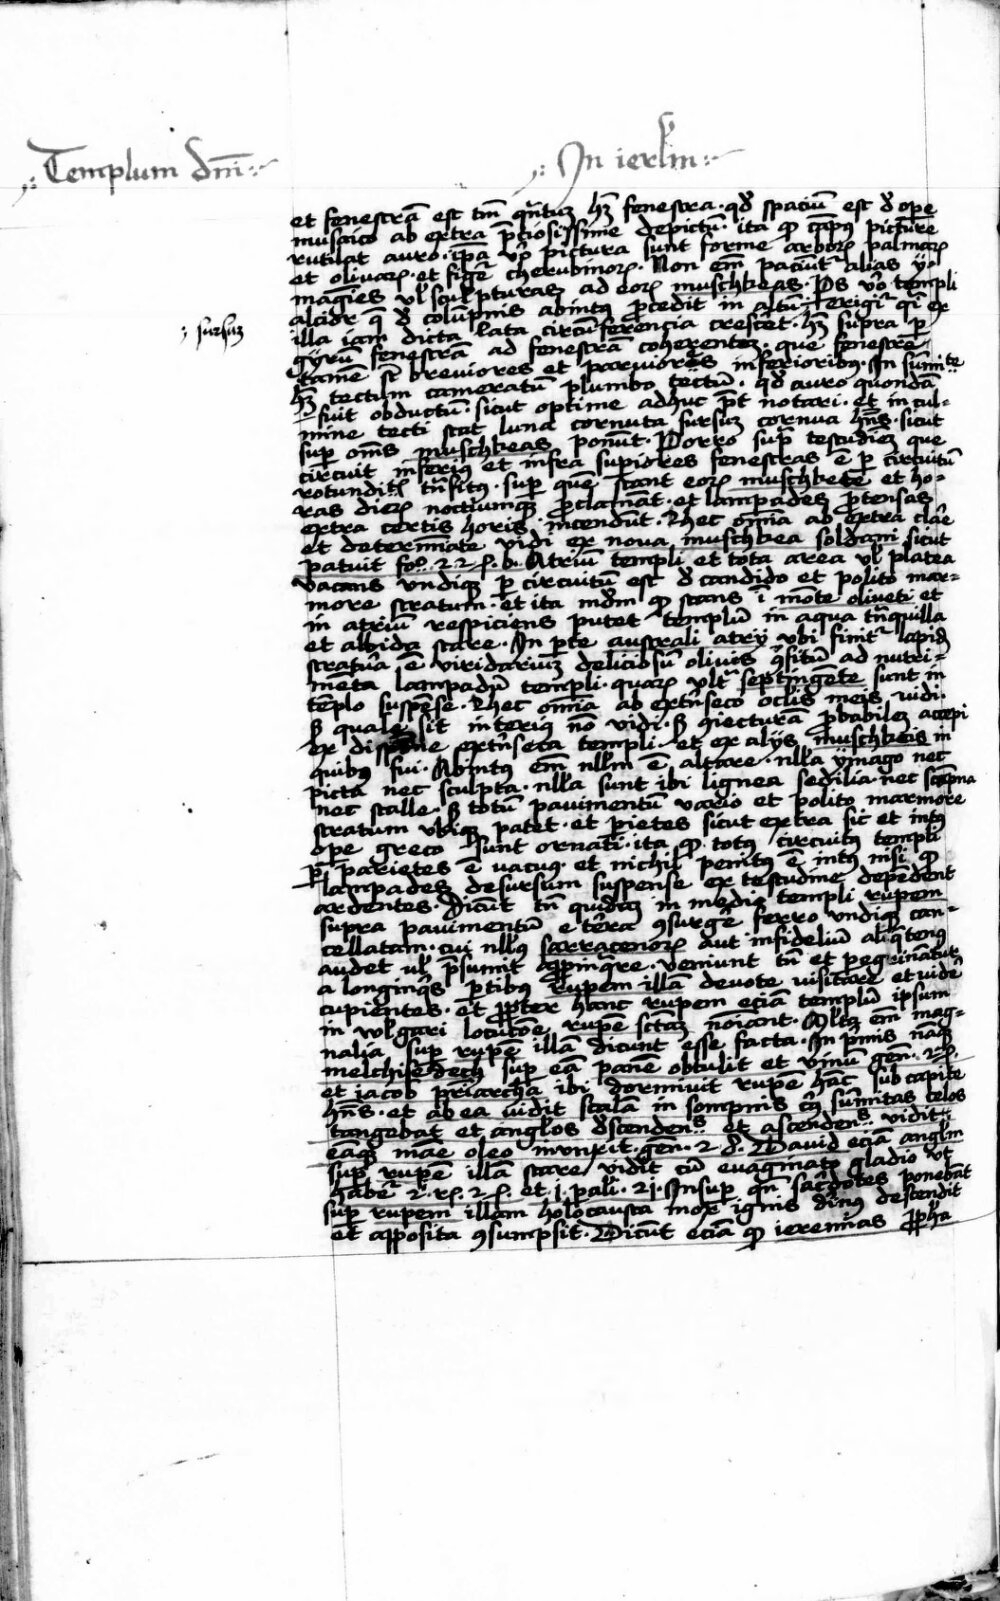 Templum dm̄
In ierl̄m
et fenestrā est tm̄ qn̄tuȝ hȝ fenestra · qd̓ spaciū est d̓ ope
musaico ab extra p̄ciosissime depictū · ita ꝙ cāpꝰ picture
rutilat auro · ip̄a v̓o pictura sunt forme arboꝝ palmaꝝ
et oliuaꝝ · et figē cherubinoꝝ · Non em̄ paciūt᷑ alias ÿ
magines vl̓ sculpturas ad eoꝝ muschkeas · Ps v̓o templi
altior q̄ d̓ colūpnis abintꝰ p̄cedit in altū erigit᷑ qͥ ex
illa iam dicta lata circūferencia
sursuȝ
gyrū fenestrā ad fenestrā coherenteȝ · que fenestre
tamē st̄ breuiores et paruiores inferioribꝰ · In sūmitē
hȝ tectum cameratū plumbo tectū · qd̓ auro quondā
fuit obductū · sicut optime adhuc p̄t notari · et in cul-
mine tecti stat luna cornuta sursuȝ cornua hn̄s · sicut
sup om̄s muschkeas ponūt · Porro sup̄ testudieȝ que
circuit inferiꝰ et infra supiores fenestras ē p̄ circuitū
rotunditꝭ tn̄sitꝰ · sup que stant eoꝝ muschkete et ho-
ras dieꝝ noctiumqȝ p̄clamāt · et lampades p̄tensas
extra certis horis incendūt · Rhec om̄ia ab extra clāe
et determīate vidi ex noua muschkea soldani sicut
patuit fo. 225. b. Atriū templi et tota area vl̓ platea
vacans vndiqȝ p̄ circuitū est d̓ candido et polito mar-
more stratum · et ita mōm ꝙ stans ī mōte oliueti et
in atriū respiciens putet templū in aqua tn̄quilla
et albida stare · In pte australi atrÿ vbi finit᷑ lapidȝ
stratūa ē viridariuȝ deliciosū oliuis 9situ ad nutri-
mēta lampadū templi · quaꝝ vlt᷑ septingēte sunt in
tēplo suspēse · Rhec om̄ia ab extn̄seco oclis meis vidi
sȝ quale sit interiꝰ nō vidi · sȝ 9iecturā p̄babileȝ accepi
ex extn̄seca templi et ex alijs muschkeis in
quibꝰ fui · Abintꝰ em̄ nll̓m ē altare · nll̓a ymago nec
picta nec sculpta · nll̓a sunt ibi lignea sedilia · nec scāpna
nec stalle · sȝ totū pauimentū vario et polito marmore
stratum vbiqȝ patet · et p̄ietes sicut extra sic et intꝰ
ope greco sunt ornati · ita ꝙ totꝰ circuitꝰ templi
p̄ parietes ē vacuꝰ · et nichil penitꝰ ē intꝰ nisi ꝙ
lampades desursum suspense ex testudine depēdent
ardentes · Dicūt tn̄ quidāȝ in medio templi rupem
supra pauimentū e tēra 9surgē ferro vndiqȝ can-
cellatam · cui nll̓ꝰ sarracenoꝝ aut infideliū aliq̄tenꝰ
audet vl̓ p̄sumit appinqre · veniunt tn̄ et peginātur
a longinqͥs ptibꝰ rupem illā deuote visitare et vidē
cupientes · et ꝓpter hanc rupem eciā templū ipsum
in vlgari locucōe rupē sctāȝ noīant · Mlta em̄ mag-
nalia sup rupē illā dicunt esse facta · In p̄mis nāqȝ
melchisedech sup eā panē obtulit et vinū gen̄ ·
et iacob pr̄iarchā ibi dormiuit rupē hāc sub capite
hn̄s · et ab ea vidit scalā in sompnis cꝰ sūmitas celos
tangebat et angl̓os d̓scendens et ascendens vidit
eāqȝ māe oleo inunxit · gen̄ · 28 · Dauid eciā angl̓m
sup rupē illā stare vidit cū euaginato gladio vt
habet᷑ 2. rꝭ. 25. et j. pali. 21. Insup qn̄ sac̄dotes ponebāt
sup rupem illam holocausta mox ignis diuinꝰ descendit
et apposita 9sumpsit · Dicūt eciā ꝙ ieremias ꝓph̄a